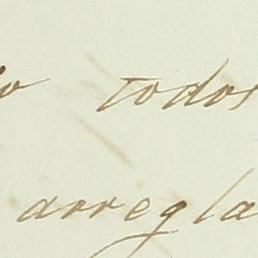 todos
arregla